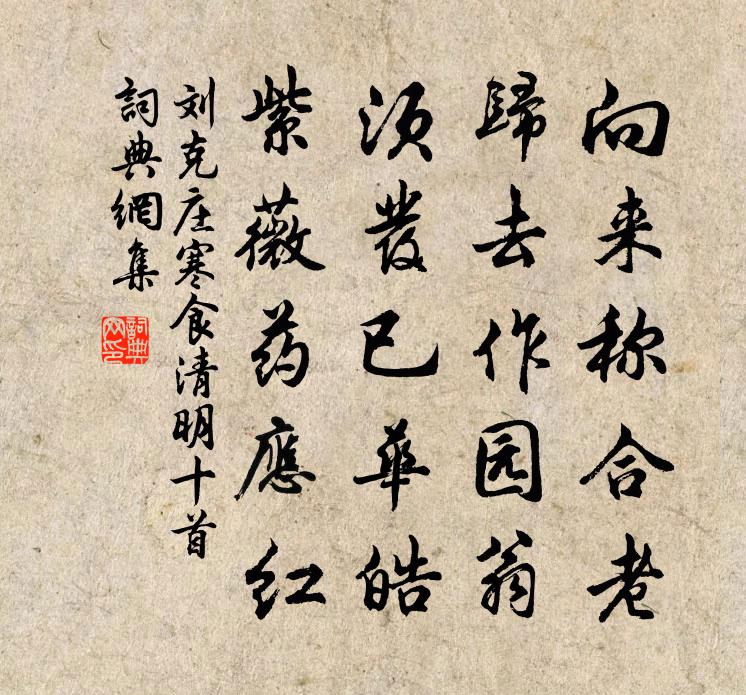 向来称合老
歸去作园翁
须发已华皓
紫薇药應红
刘克庄寒食清明十首
詞典網集
詞典网印